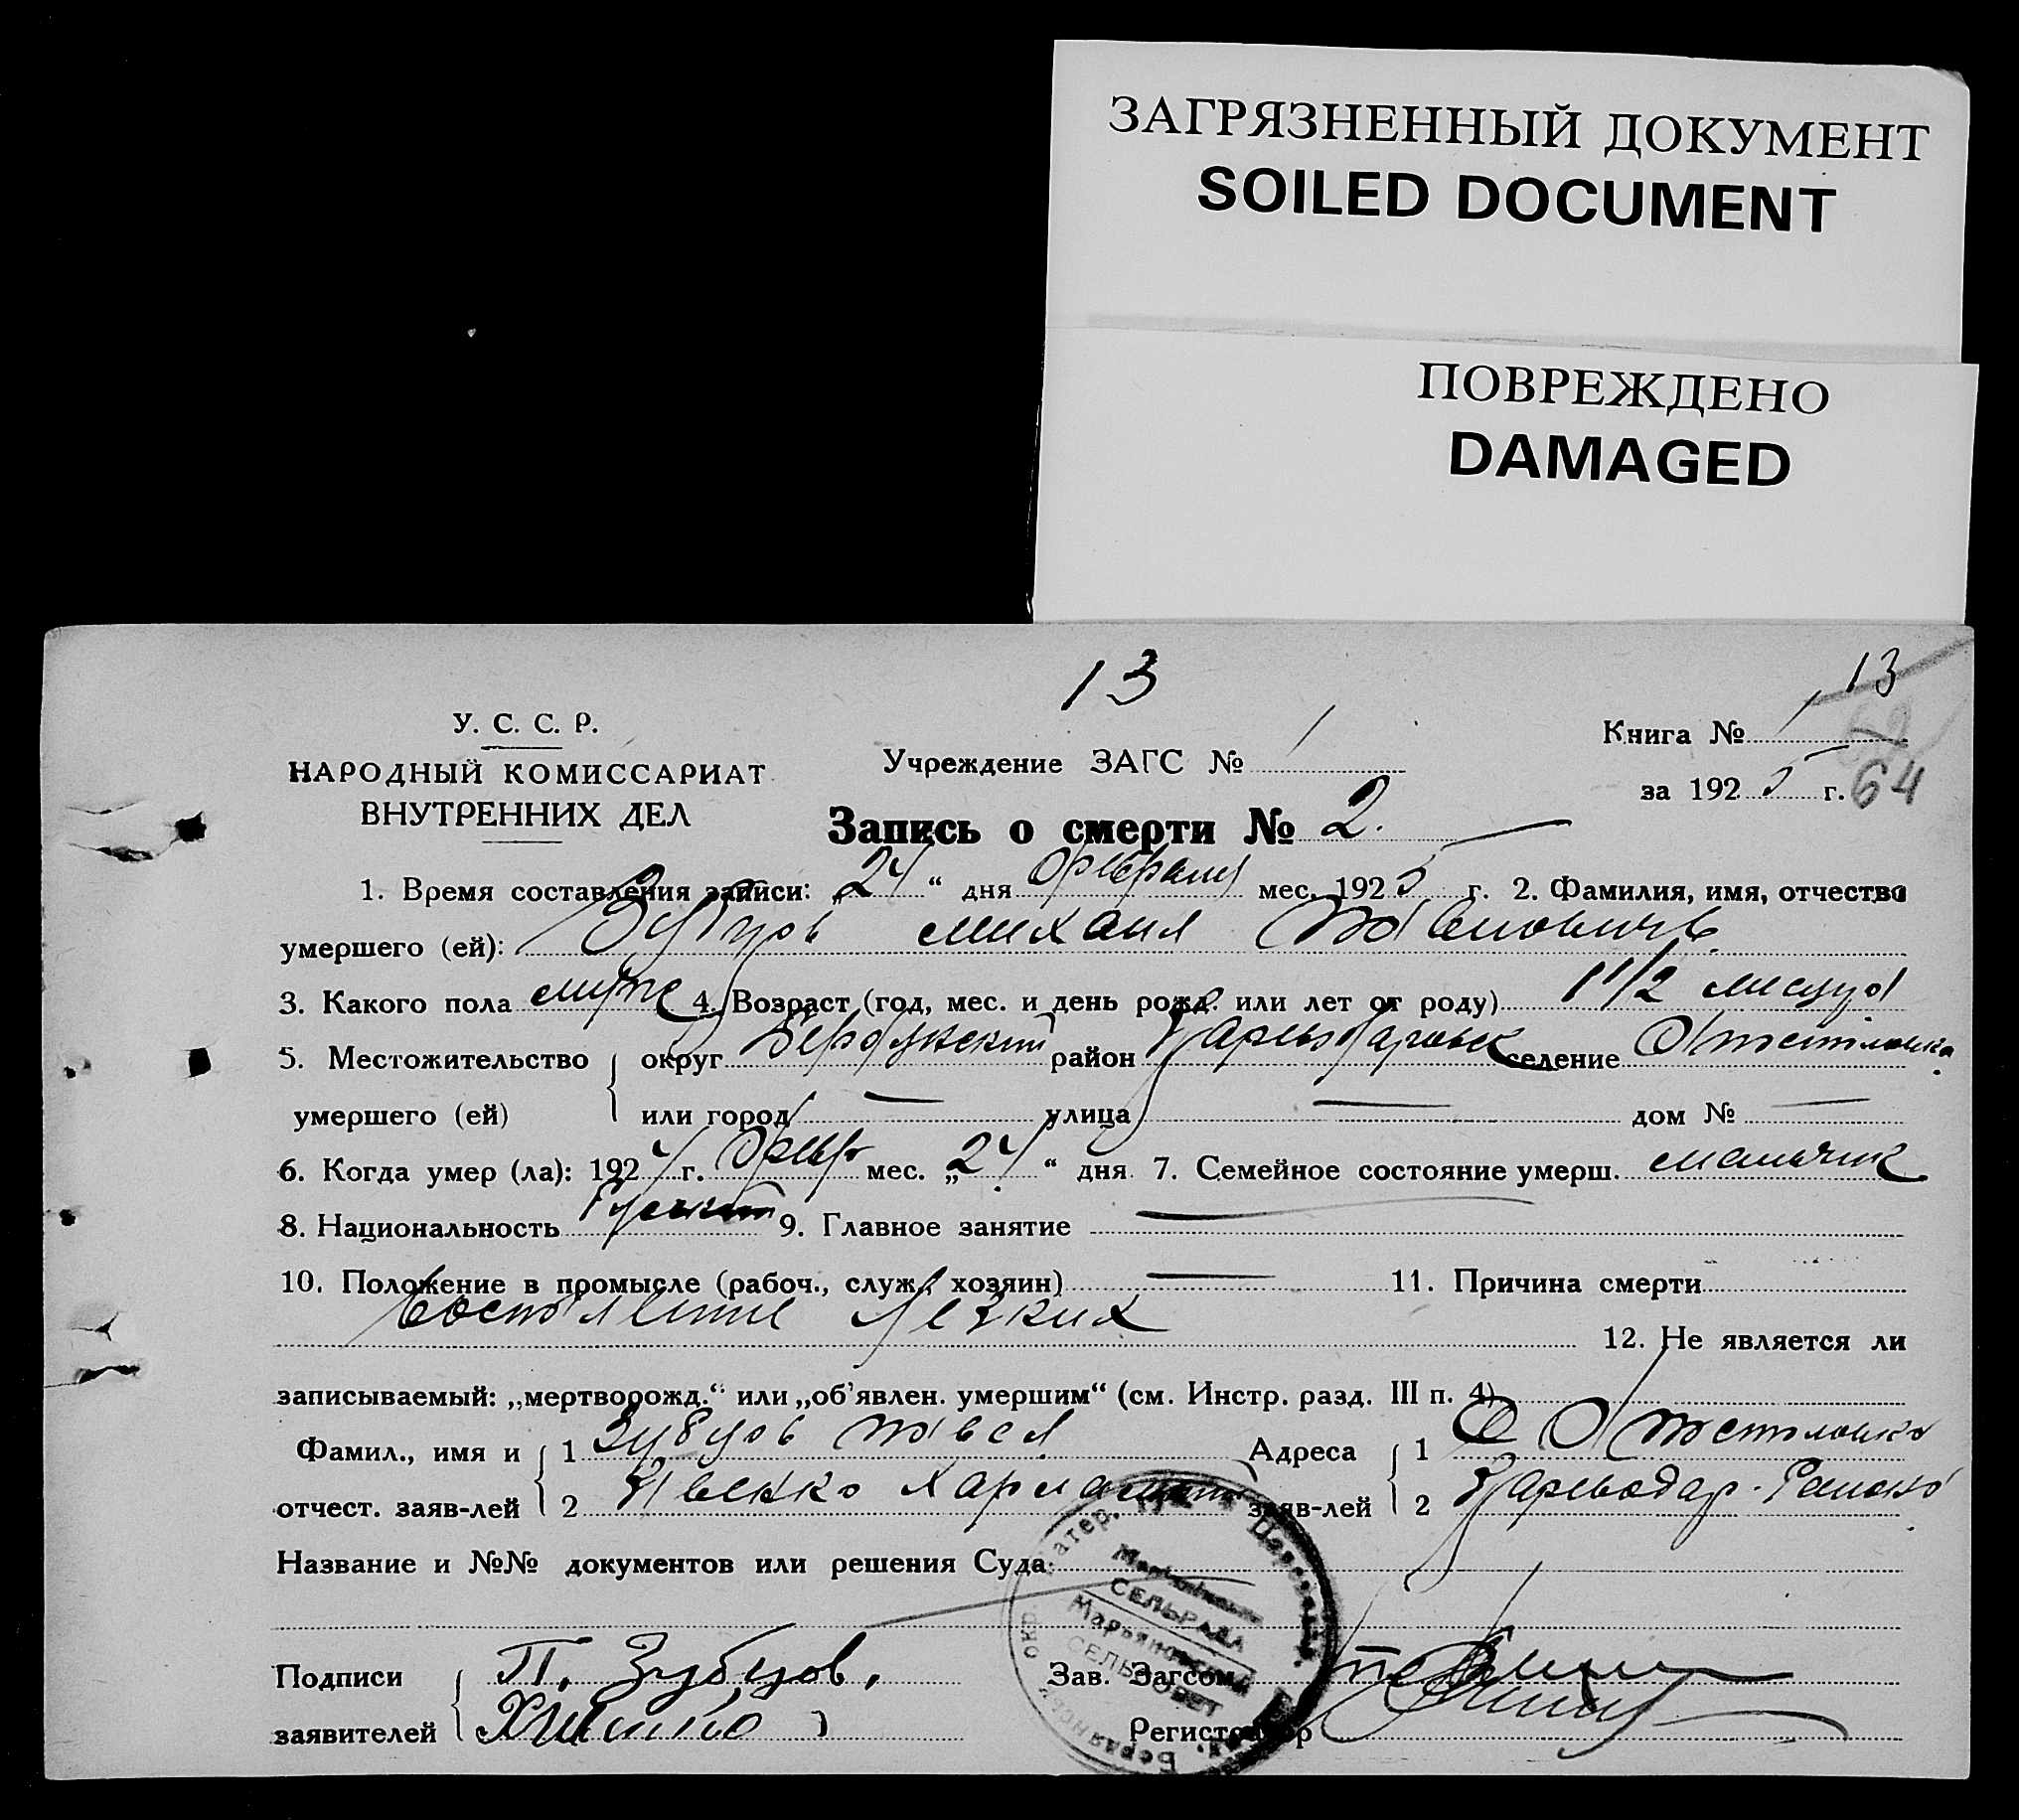 ЗАГРЯЗНЕННЫЙ ДОКУМЕНТ
SOILED DOCUMENT
ПОВРЕЖДЕНО
DAMAGED
13
13
У. С. С. Р.
НАРОДНЫЙ КОМИССАРИАТ
ВНУТРЕННИХ ДЕЛ
Учреждение ЗАГС № 1
Книга № 1
за 1925 г. 64
Запись о смерти № 2.
1. Время составления записи: „24“ дня февраля мес. 1925 г. 2. Фамилия, имя, отчество
умершего (ей): Зубцов Михаил Павлович
3. Какого пола муж 4. Возраст (год, мес. и день рожд. или лет от роду) 1 1/2 месяца
5. Местожительство округ Бердянский район Царевдаровск селение
умершего (ей) или город — улица — дом № —
6. Когда умер (ла): 192 г. февр мес. „24“ дня 7. Семейное состояние умерш. мальчик
8. Национальность Русский 9. Главное занятие —
10. Положение в промысле (рабоч., служ., хозяин) — 11. Причина смерти
Воспаление легких 12. Не является ли
записываемый: „мертворожд.“ или „об’явлен. умершим“ (см. Инстр. разд. III п. 4)
Фамил., имя и 1 Зубцов Павел Адреса 1
отчест. заяв-лей 2 заяв-лей 2
Название и №№ документов или решения Суда
СЕЛЬРАДА
Марьяновский
СЕЛЬСОВЕТ
Подписи П. Зубцов, Зав. Загсом
заявителей Регистратор